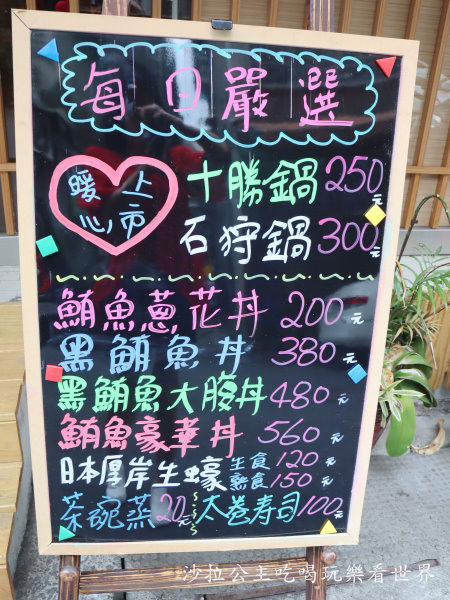 每日嚴選
暖心上市
十勝鍋250元
石狩鍋300元
鮪魚蔥花丼 200元
黑鮪魚丼 380元
黑鮪魚大腹丼 480元
鮪魚豪華丼 560元
日本厚岸生蠔 生食120元
熟食150元
茶碗蒸20元 太卷寿司100元
沙拉公主吃喝玩樂看世界